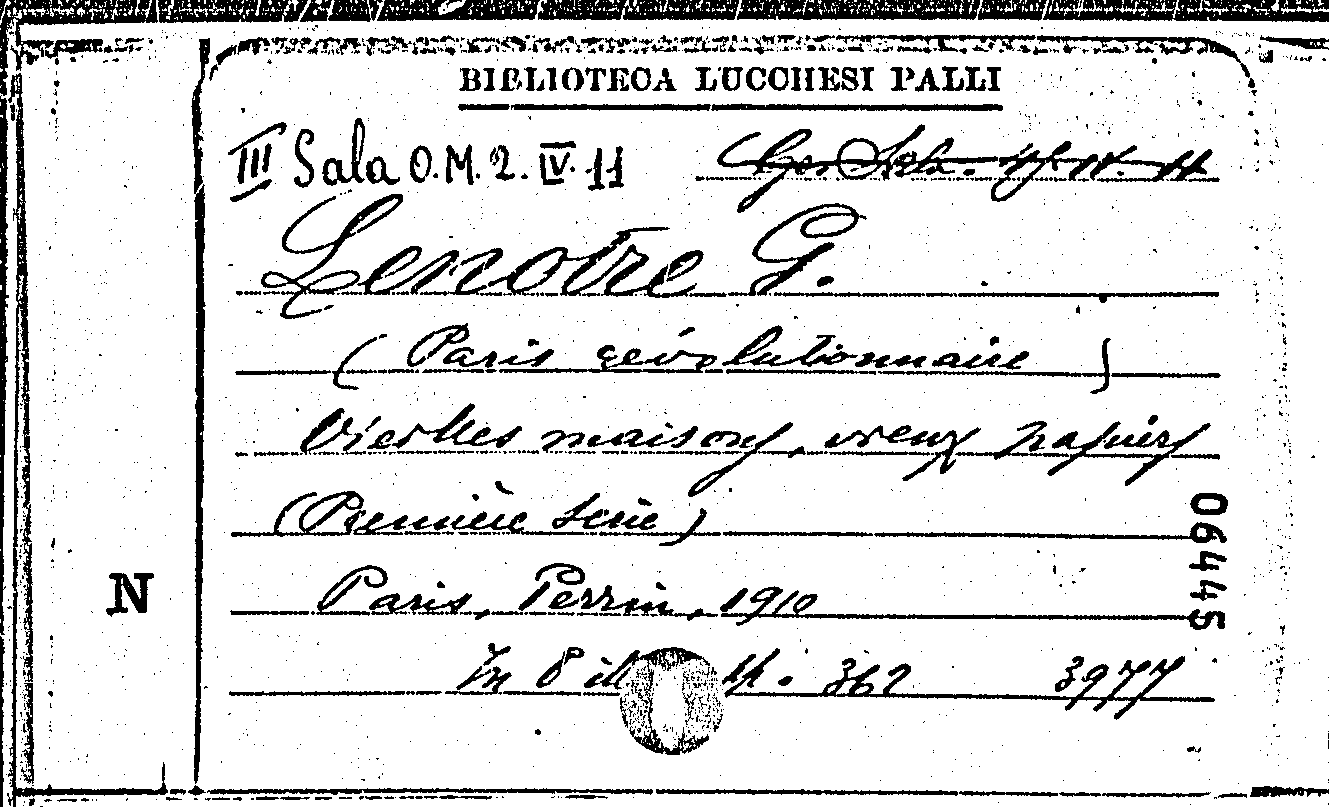 BIBLIOTECA LUCCHESI PALLI
III Sala O.M. 2. IV. 11
Lenotre G.
( Paris révolutionnaire )
Vieilles maisons, vieux papiers
(Première série)
Paris, Perrin, 1910
In 8 ill p. 362 3977
06445
N